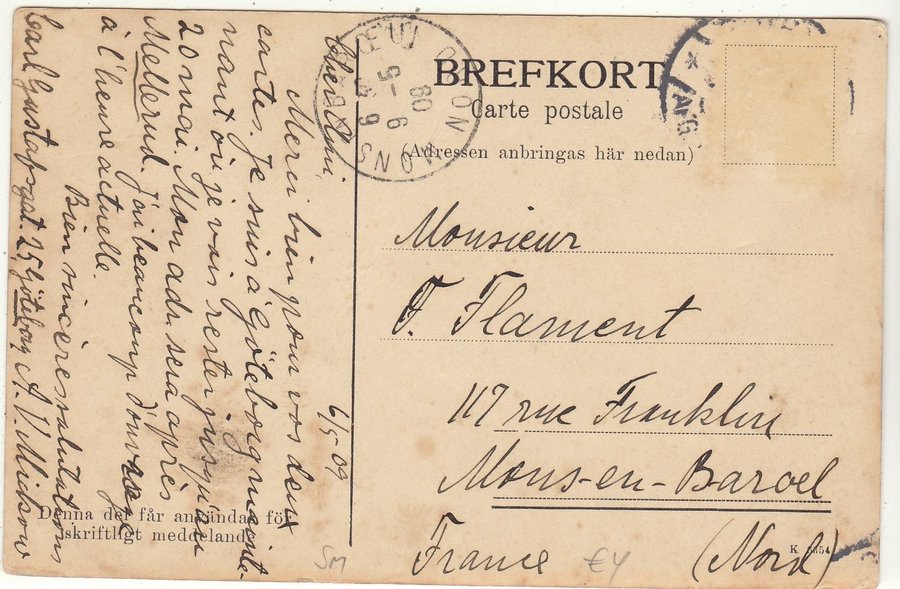 BREFKORT
Carte postale
(Adressen anbringas här nedan)
Monsieur
F. Flament
117 rue Franklin
Mons-en-Baroel
France (Nord)
K 5554
Denna del får användas för
skriftligt meddelande
SM
€4
6/5-09
Cher Ami,
Merci bien pour vos deux
cartes. Je suis à Göteborg mainte-
nant où je vais rester jusqu'au
20 mai. Mon adr. sera après
Mellerud. J'ai beaucoup d'ouvrage
à l'heure actuelle.
Bien sincères salutations
Carl Gustafsgat. 25 Göteborg A. V.